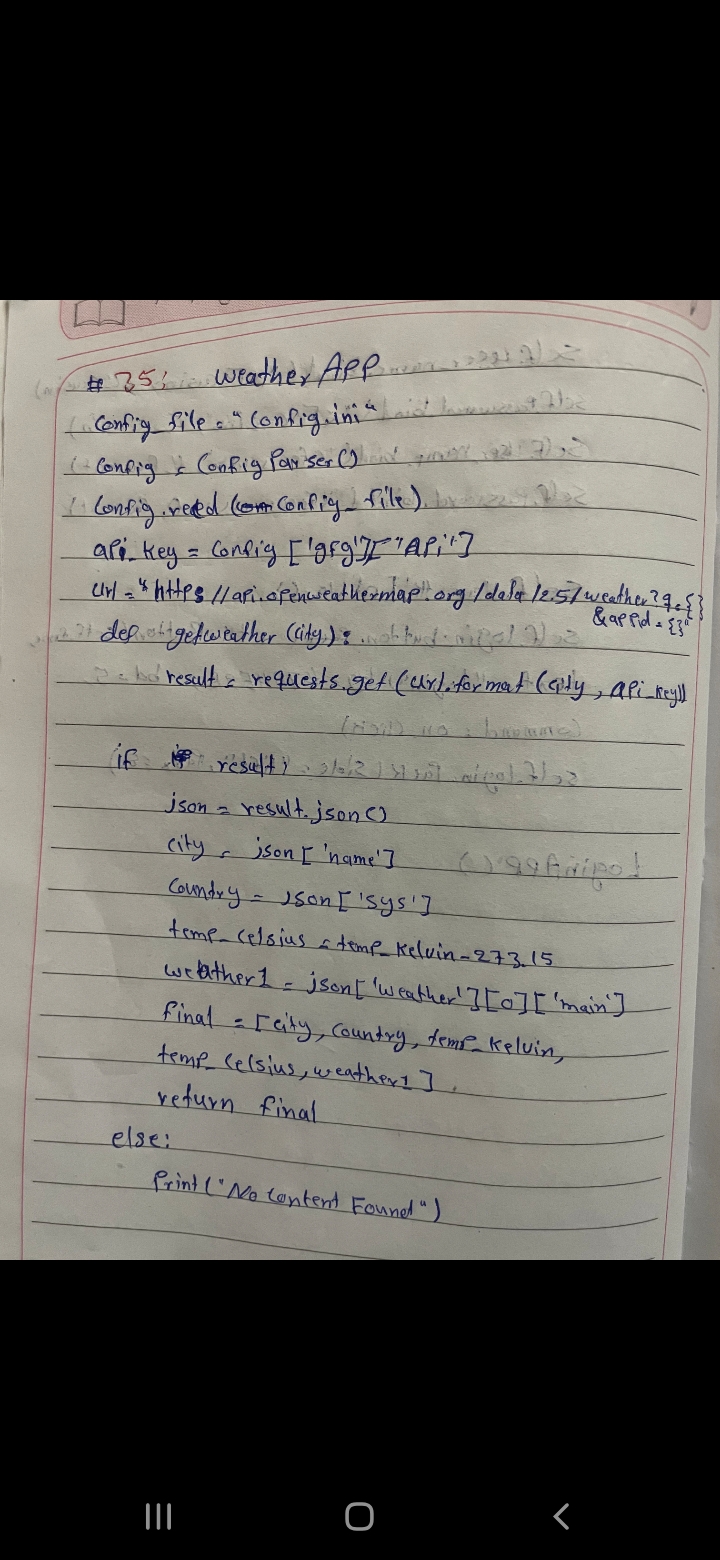 # 35: Weather APP
Config_file = "Config.ini"
Config = ConfigParser()
Config.read (Config_file)
api_key = Config ['gfg']["Api"]
Url = "https //api.openweathermap.org /data /2.5/weather?q={}
&appid = {}"
def getweather (city):
result = requests.get (Url.format (city, api_key))
if result:
json = result.json()
city = json ['name']
Country = json ['sys']
temp_celsius = temp_kelvin-273.15
weather1 = json['weather'][0]['main']
final = [city, country, temp_kelvin,
temp_celsius, weather1]
return final
else:
Print ("No Content Found")